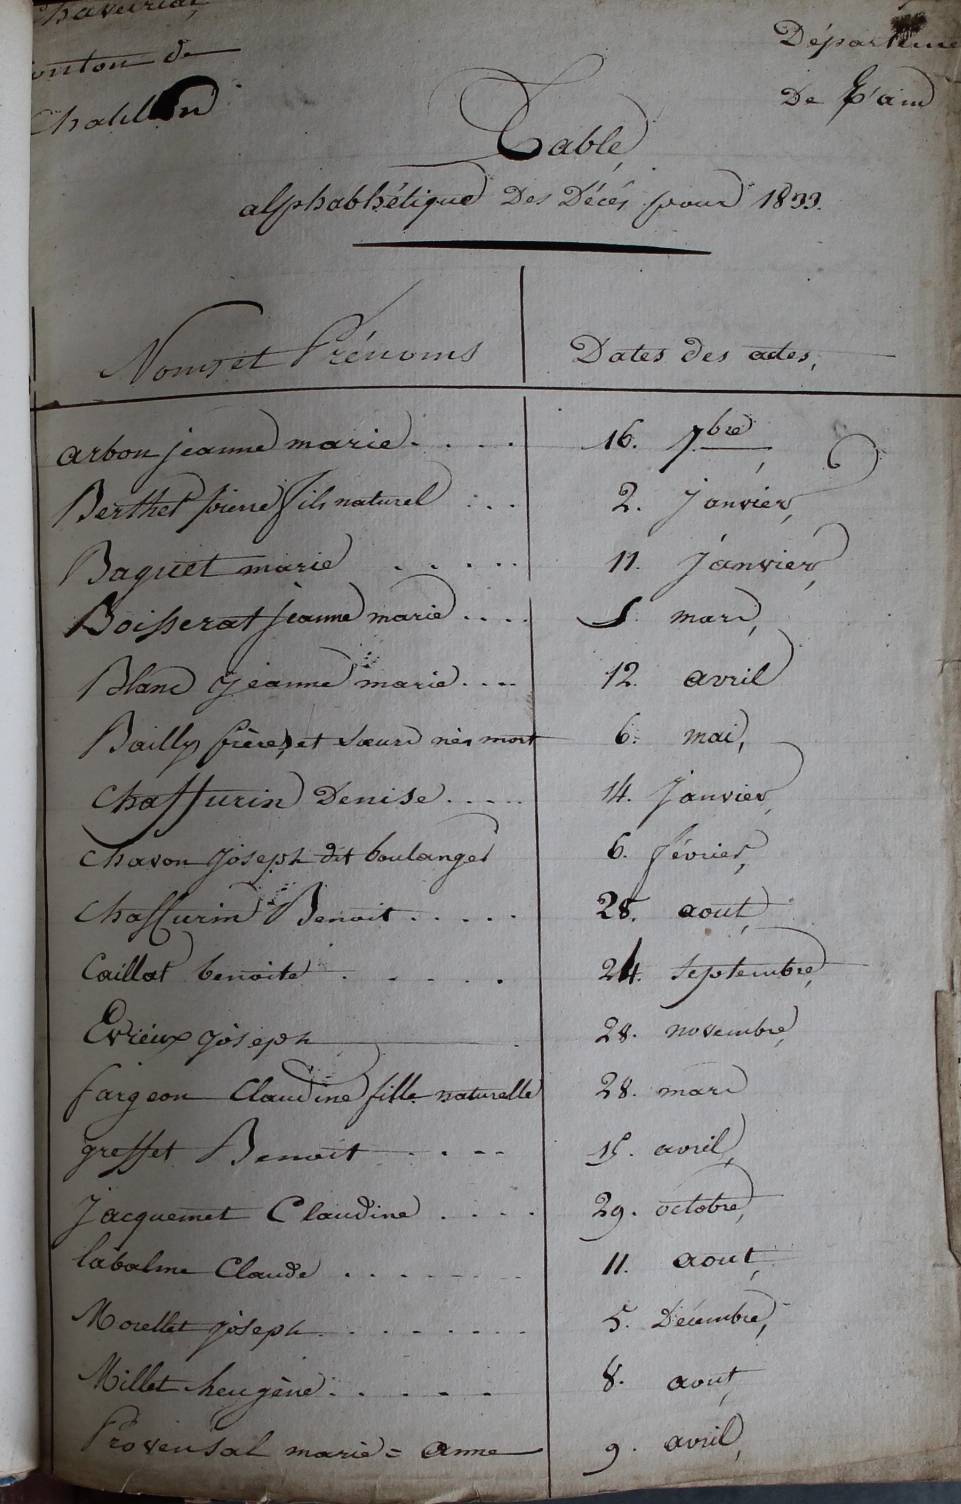 Chaveiriat,
Conton de
Chatillon
Départeme
De L'ain
Table
alphabhétique Des Décés pour 1833.
Noms et Prénoms
Dates des actes,
arbon jeanne marie . . . . 16. 7.bre,
Berthet pierre fils naturel : . . 2. janvier,
Baguet marie . . . . . 11. janvier,
Boisserat jeanne marie . . . . 5 mars,
Blanc jeanne marie . . . . 12. avril
Bailly frère, et soeurs nés mort 6. mai,
Chaffurin Denise . . . . . 14. janvier,
Chavon joseph dit boulanger 6. février,
Chaffurin Benoit . . . . . 28. aout,
Caillat benoite . . . . . 24. septembre,
Evrieux joseph 28. novembre,
fargeon Claudine fille naturelle 28. mars
greffet Benoit . . . . 15. avril,
jacquemet Claudine . . . . 29. octobre,
labalme Claude . . . . . . 11. aout,
Morellet joseph . . . . . . . 5. Décembre,
Millet heugène . . . . . 8. aout,
Provensal marie = anne 9. avril,